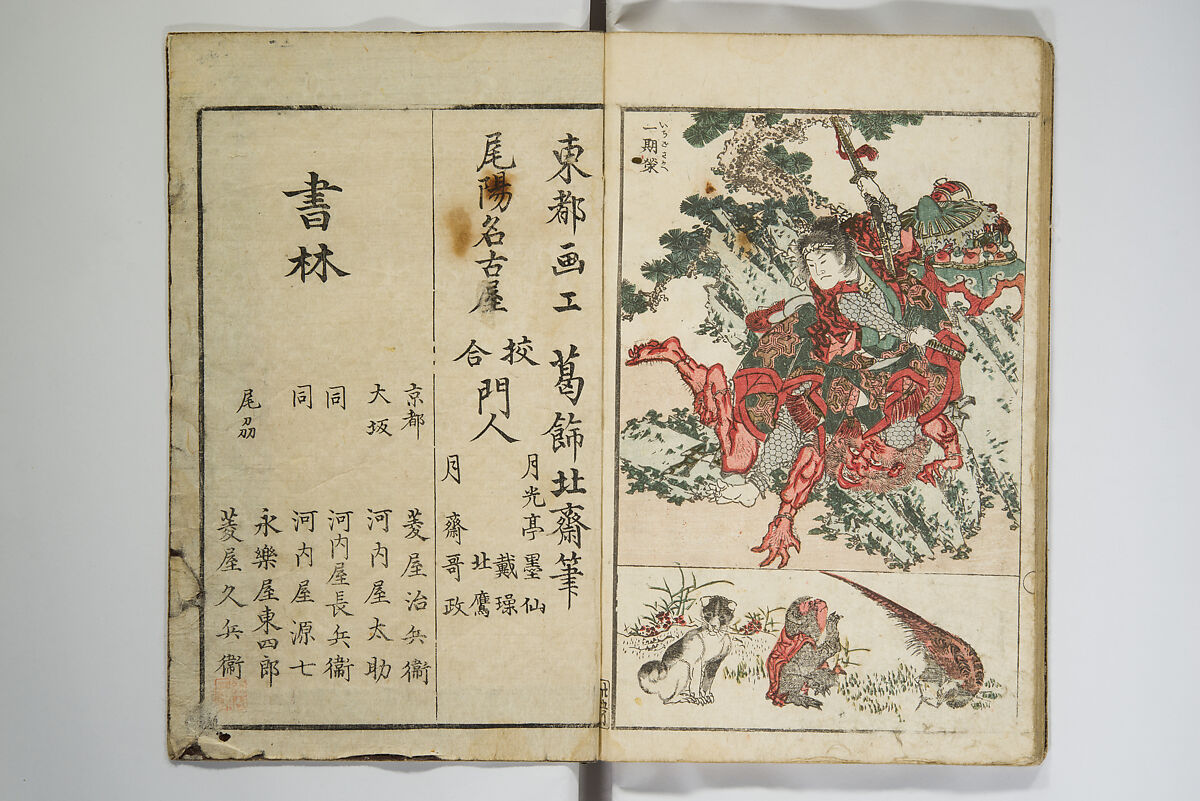 一期榮
いちごさかへ
東都画工 葛飾北齋筆
尾陽名古屋
校合門人
月光亭墨仙
戴璪
北鷹
月齋哥政
書林
京都 菱屋治兵衞
大坂 河内屋太助
同 河内屋長兵衞
同 河内屋源七
尾刕
永樂屋東四郎
菱屋久兵衞